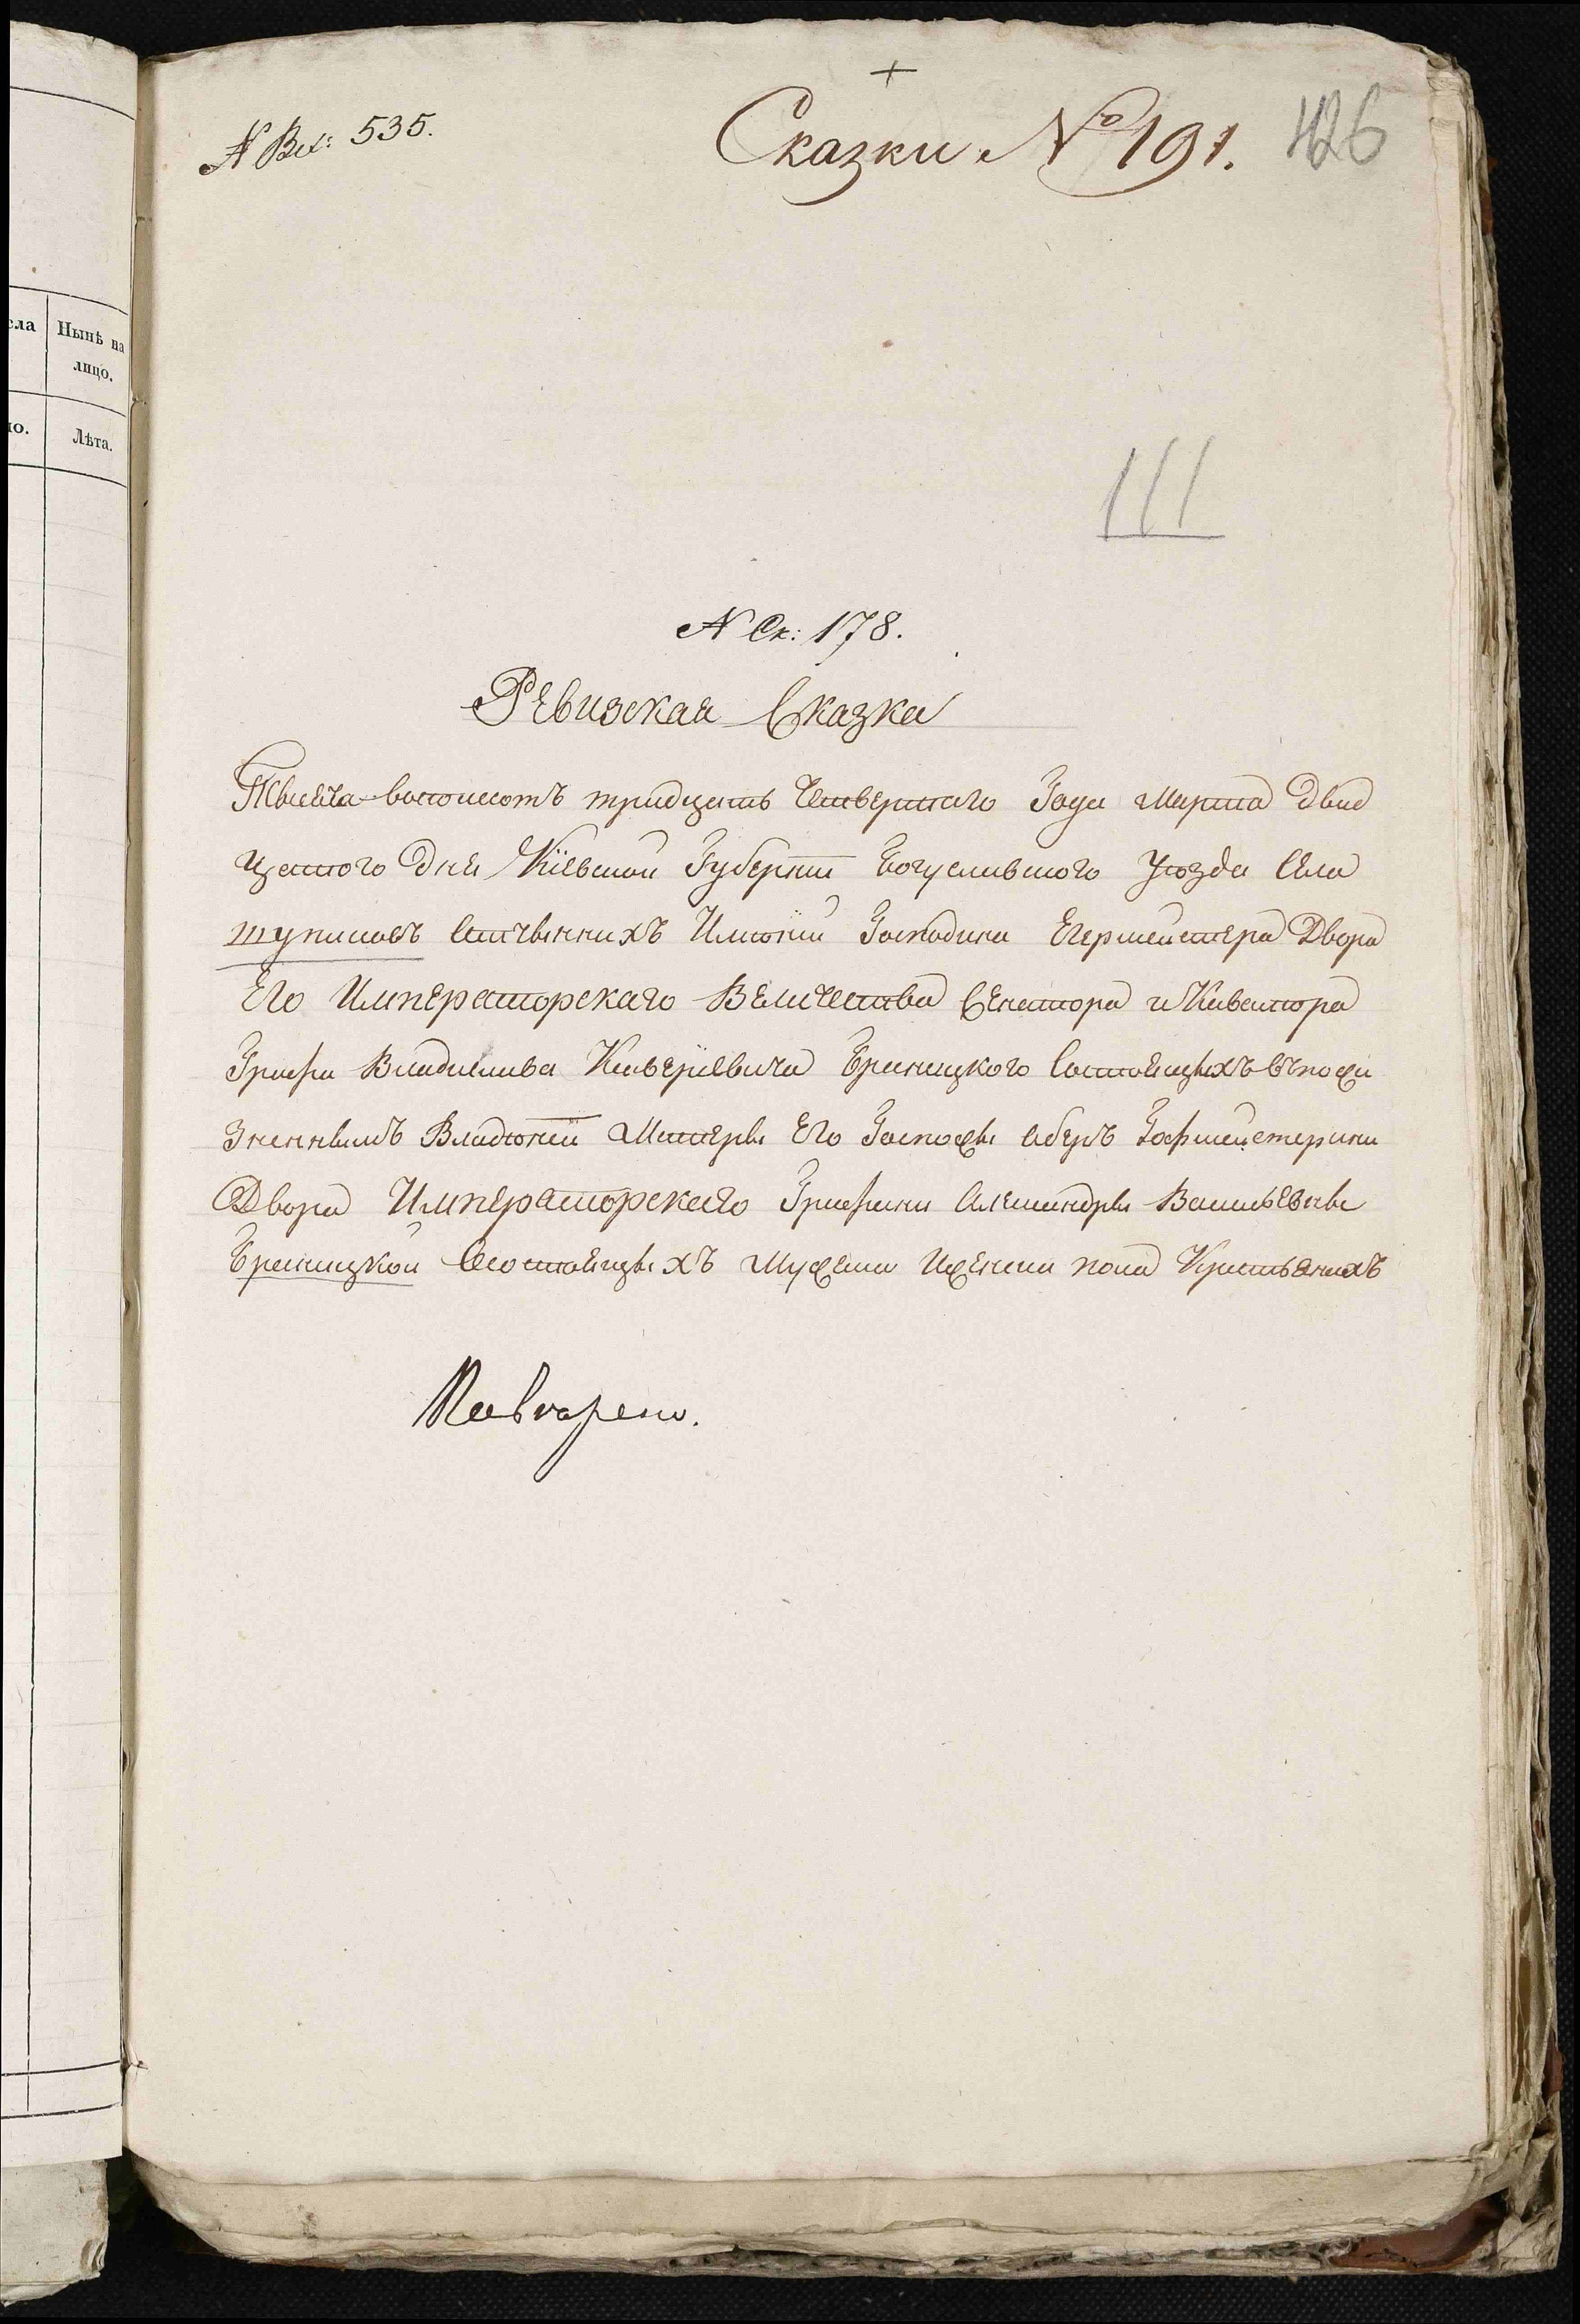 N Вх: 535.
Сказки № 191.
426
сла
Нынѣ на
лицо.
ло.
Лѣта.
111
N Ск: 178.
Ревизская Сказка
Тысяча восомсотъ тридцать Четвертаго Года Марта Двад
цатого Дня Кіевской Губерніи Богуславского Уѣзда Села
Тупицовъ Отчынныхъ Имѣній Господина Егермейстера Двора
Его Императорскаго Величества Сенатора и Кавалтора
Графа Владислава Ксаверіевича Браницкого Состоящыхъ въ пожи
зненнымъ Владѣніи Матеры Его Госпожы Оберъ Гофмейстерини
Двора Императорскаго Графини Александры Васильевны
Браницкой Осостоящыхъ Мужеска Иженска пола Крестьянахъ